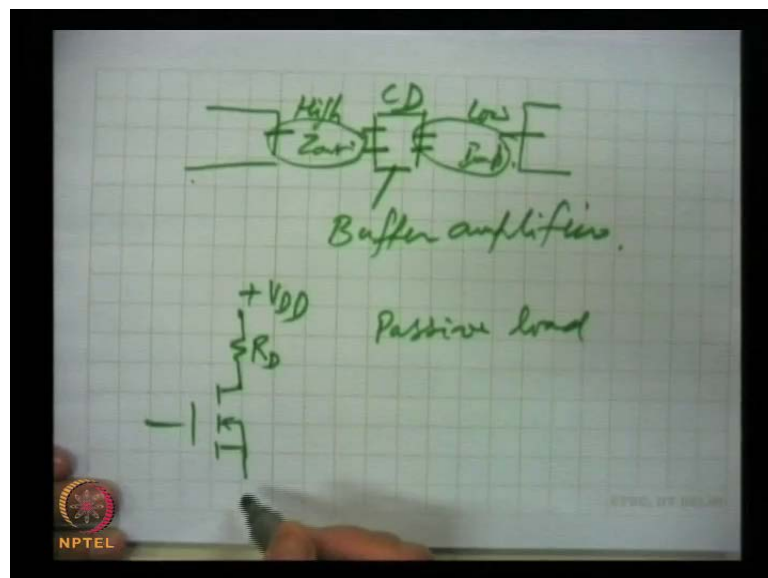 CD
High Low
Imp.
Buffer amplifiers.
+VDD
RD
Passive load
NPTEL